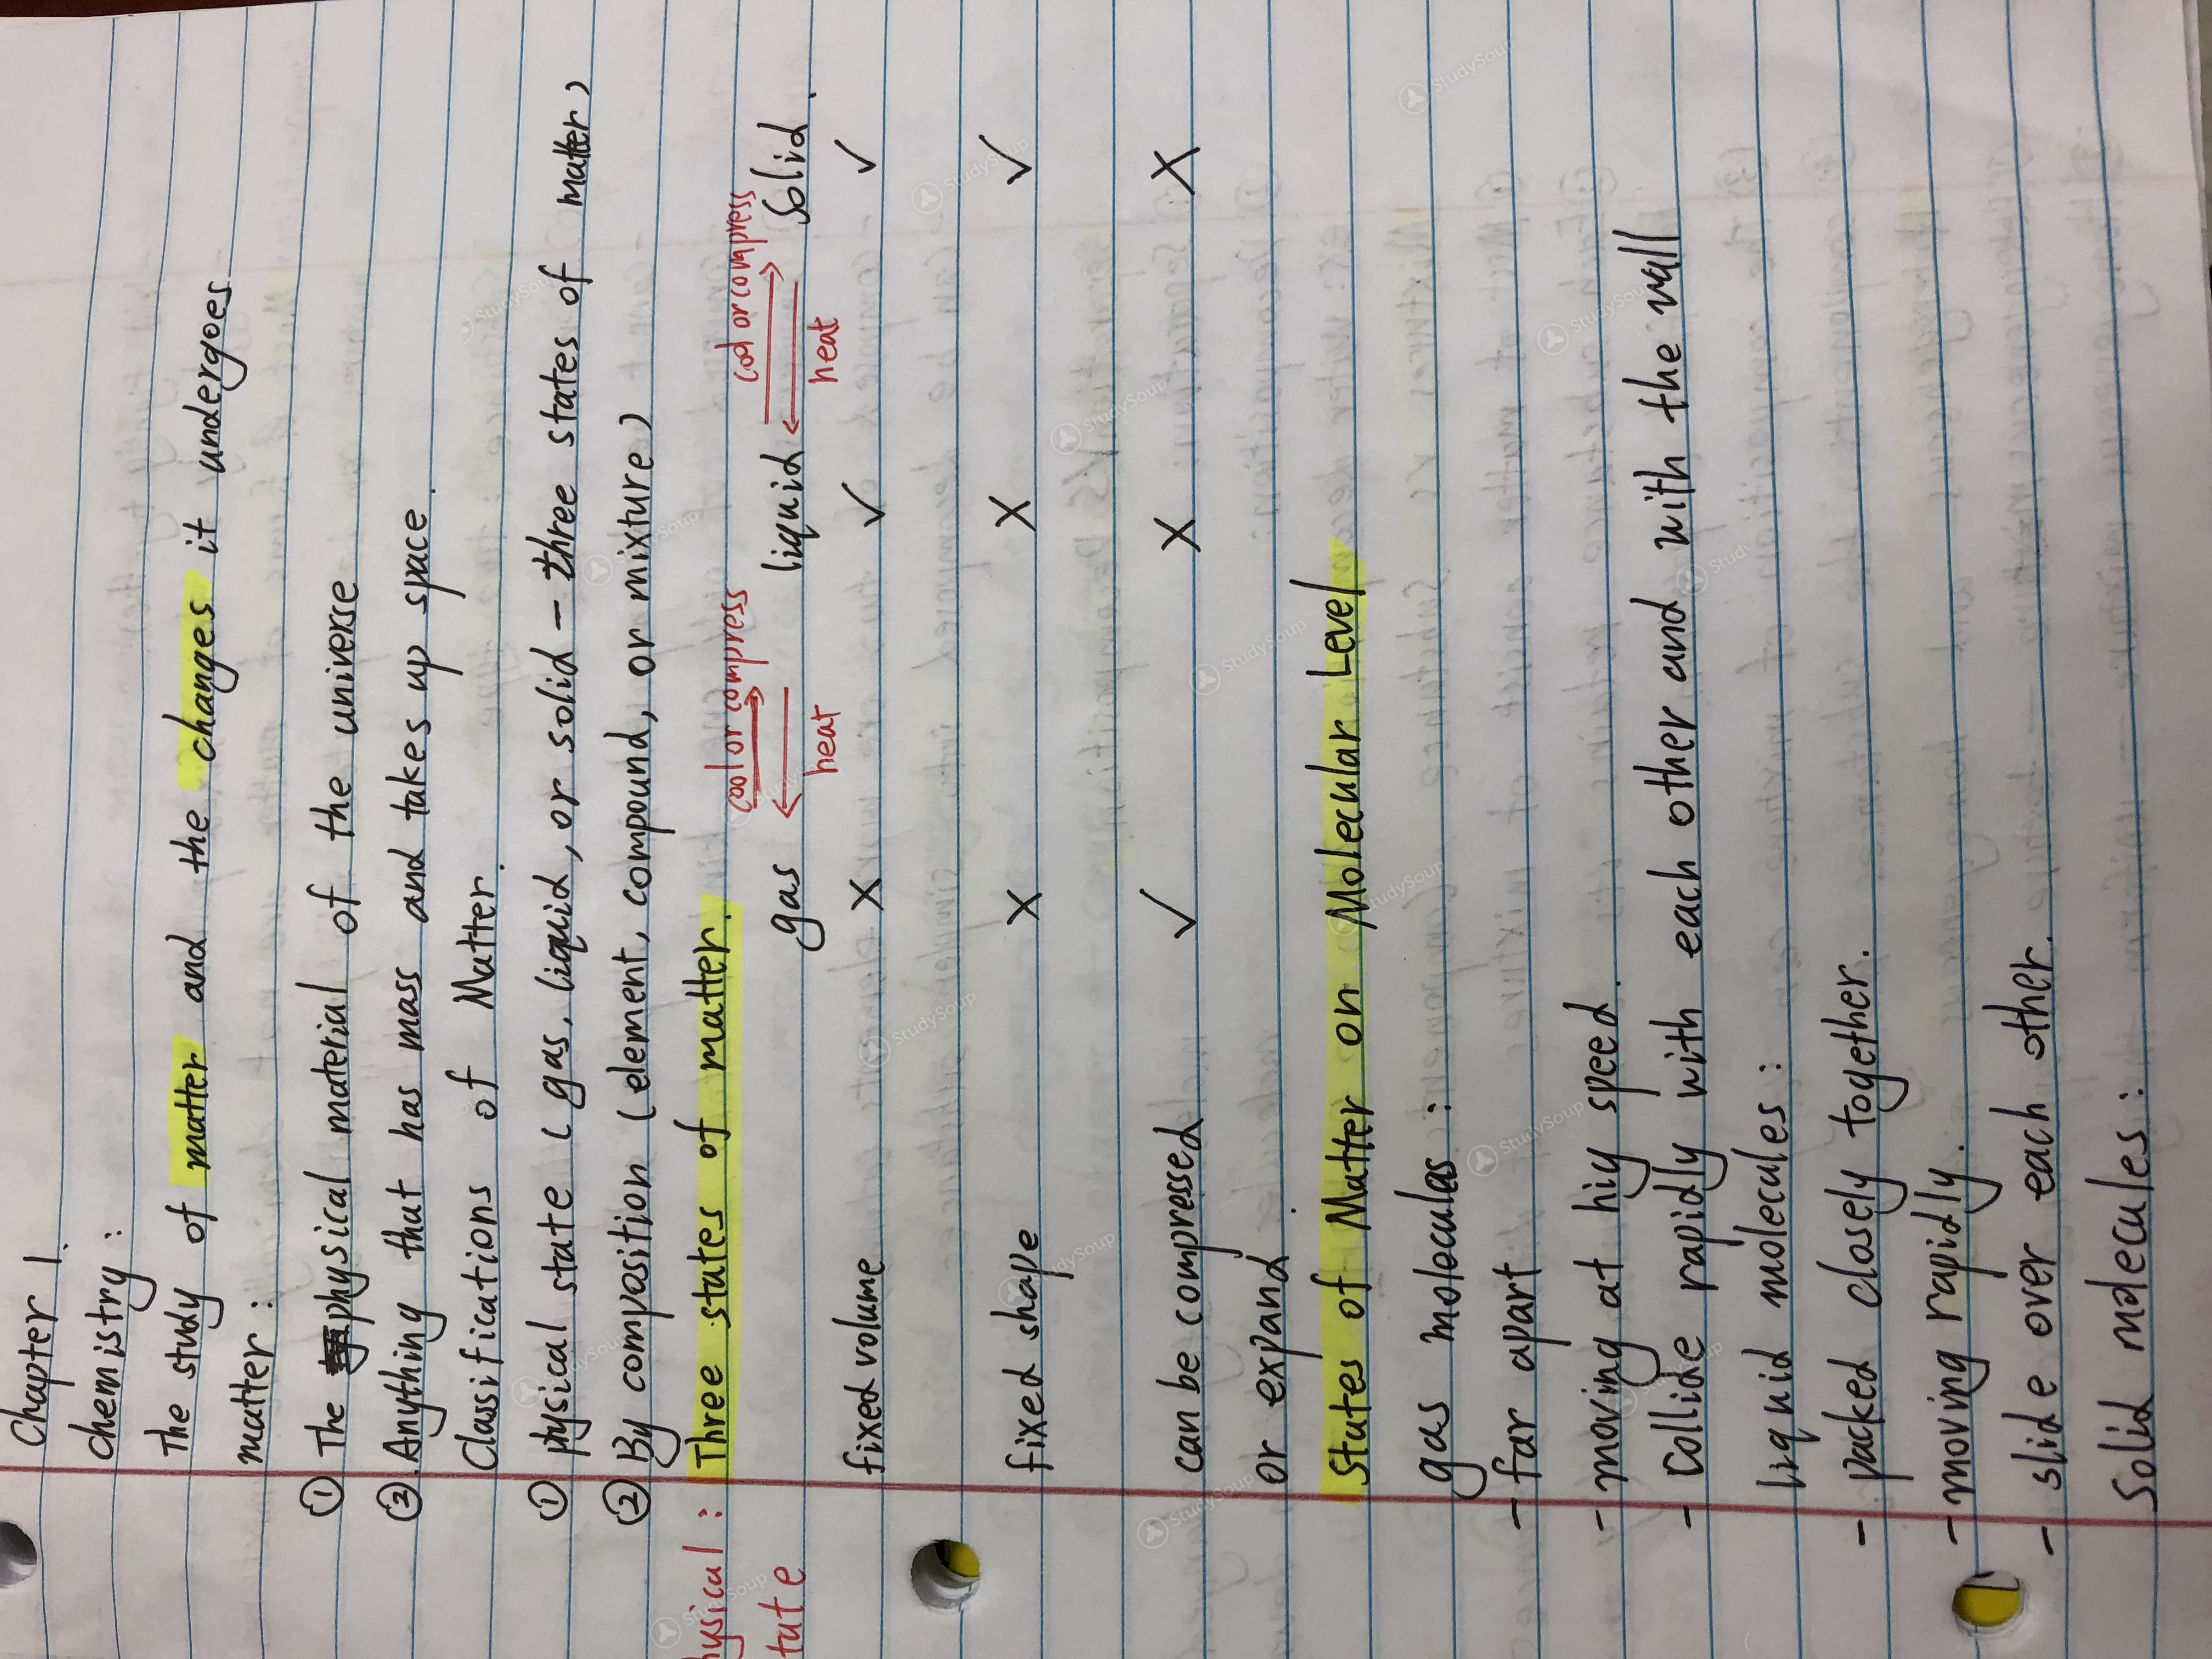 Chapter 1.
chemistry:
The study of matter and the changes it undergoes
matter:
① The physical material of the universe
② Anything that has mass and takes up space.
Classifications of Matter.
① physical state (gas, liquid, or solid – three states of matter)
② By composition (element, compound, or mixture)
hysical: Three states of matter.
tate
cool or compress cool or compress
gas liquid solid.
heat heat
fixed volume X ✓ ✓
fixed shape X X ✓
can be compressed ✓ X X
or expand.
States of Matter on Molecular Level
gas moleculas:
- far apart
- moving at hiy speed.
- collide rapidly with each other and with the wall
liquid molecules:
- packed closely together.
- moving rapidly.
- slide over each other.
Solid molecules:
StudySoup